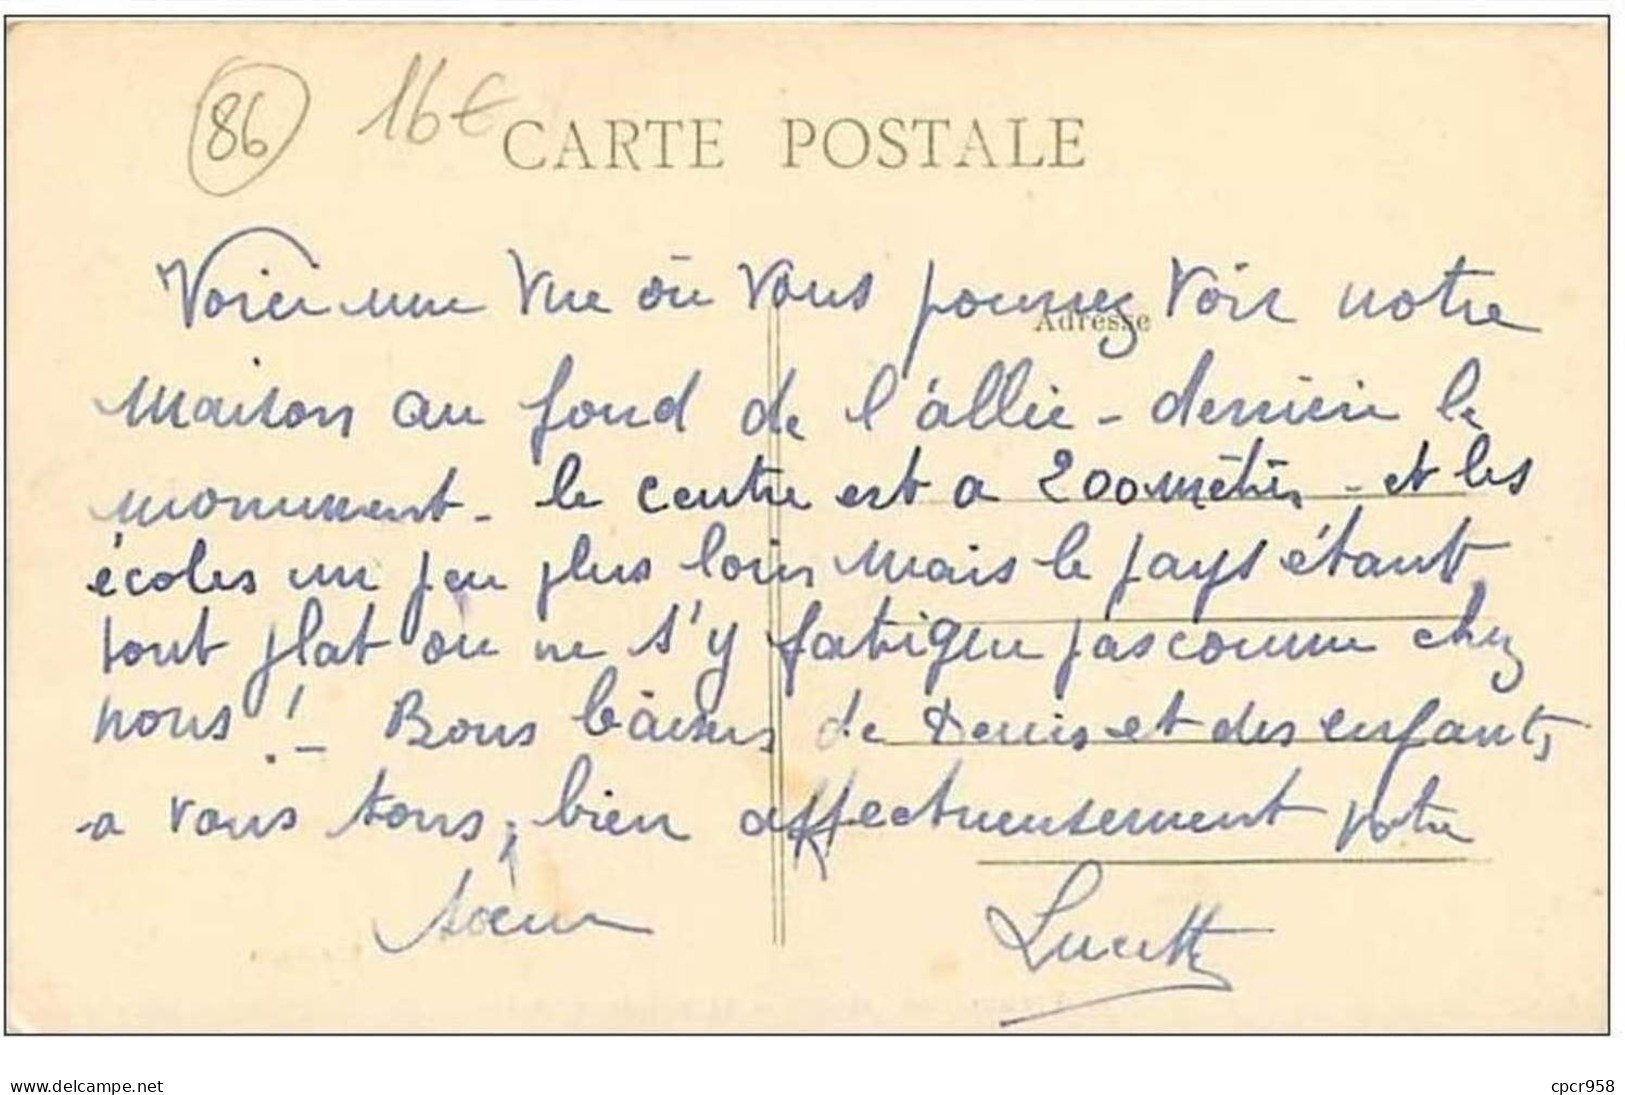 86 16€ CARTE POSTALE
Voici une vue où vous pourrez voir notre
Adresse
maison au fond de l'allée - derrière le
monument - le centre est a 200 mètres - et les
écoles un peu plus loin mais le pays étant
tout plat on ne s'y fatigue pas comme chez
nous ! - Bons baisers de Denis et des enfants
a vous tous, bien affectueusement votre
soeur Lucette
www.delcampe.net cpcr958